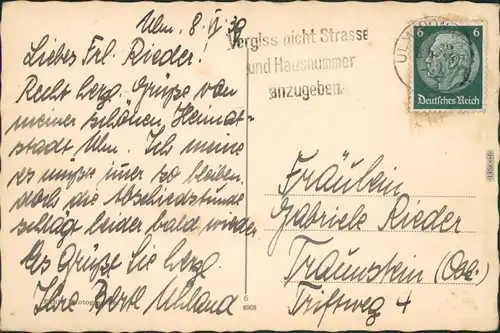 Ulm, 8. IV. 39
Liebes Frl. Rieder!
Recht herzg. Grüße von
meiner schönen, Heimat-
stadt Ulm. Ich meine
es müßte imer so bleiben,
doch die Abschiedstunde
schlägt leider bald wieder.
Es Grüßt Sie herzg.
Ihre Berta Uhland
Vergiss nicht Strasse
und Hausnummer
anzugeben
ULM
6 6
Deutsches Reich
Fräulein
Gabriele Rieder
Traunstein (Obb.)
Triftweg 4
6
6908